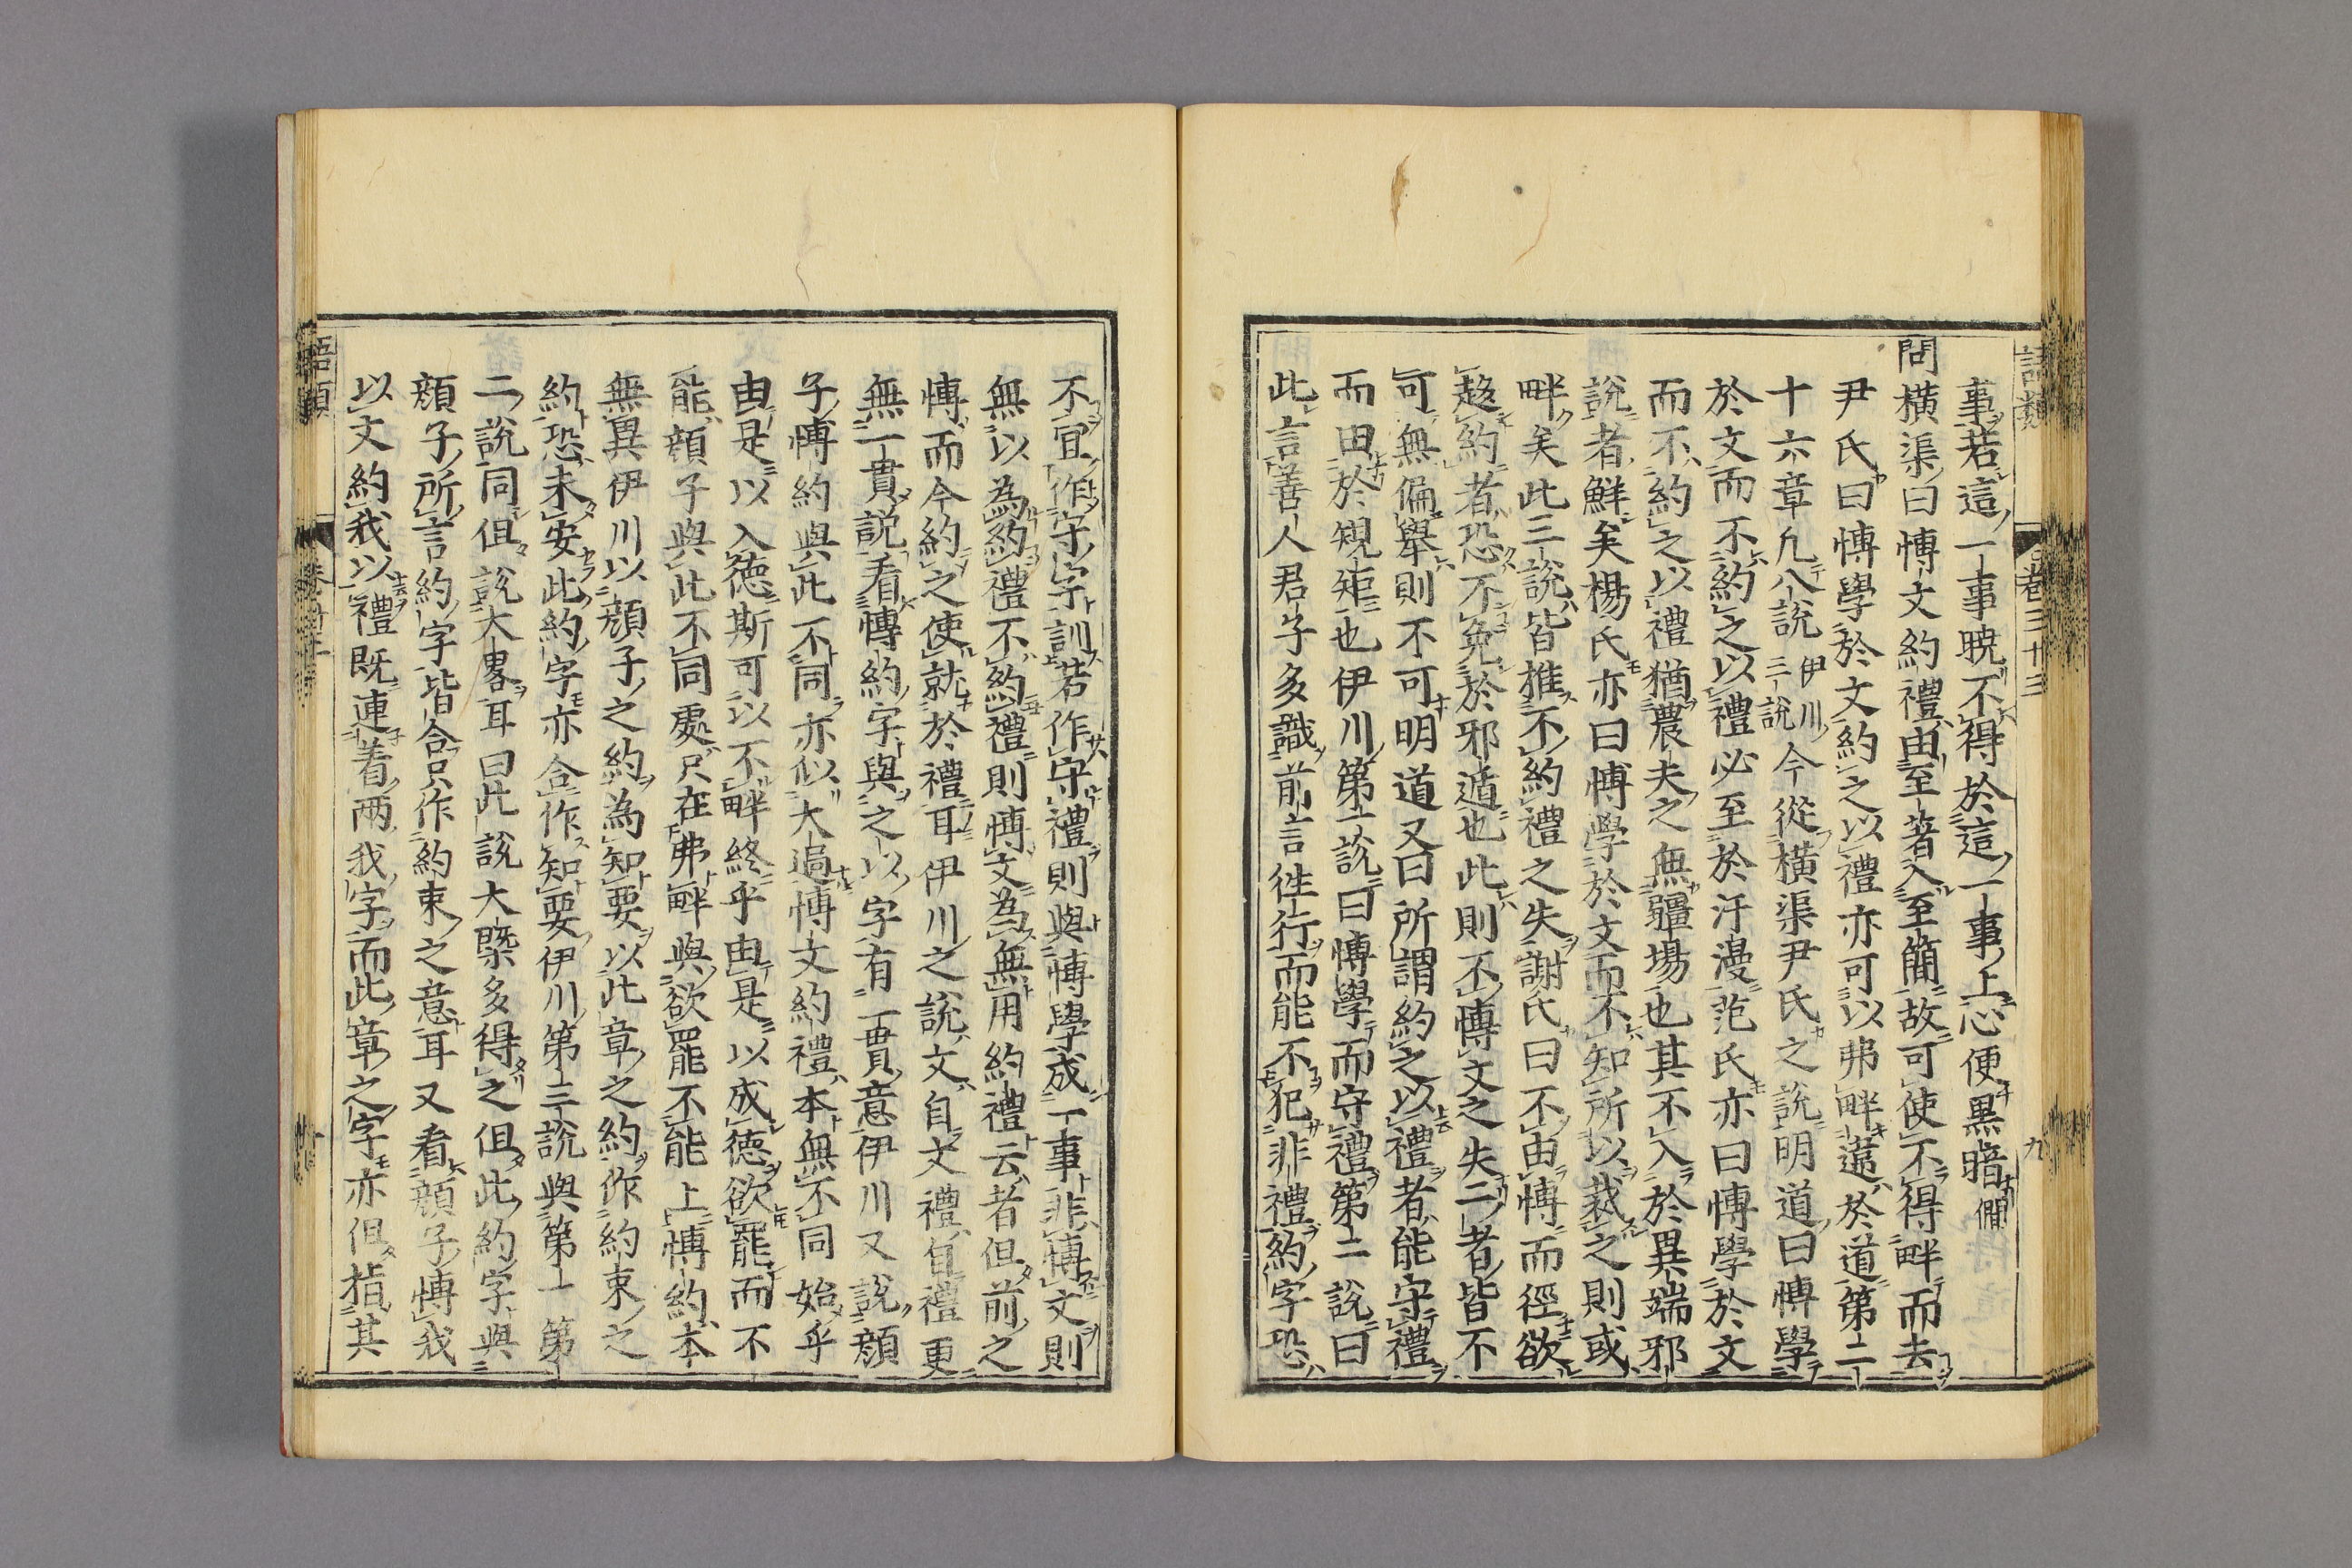 語類
卷三十三
九
事若這一事曉不得於這一事上心便黑暗僩
問橫渠曰博文約禮由至著入至簡故可使不得畔而去
尹氏曰博學於文約之以禮亦可以弗畔違於道第二
十六章凡八說伊川三說今從橫渠尹氏之說明道曰博學
於文而不約之以禮必至於汗漫范氏亦曰博學於文
而不約之以禮猶農夫之無疆場也其不入於異端邪
說者鮮矣楊氏亦曰博學於文而不知所以裁之則或
畔矣此三說皆推不約禮之失謝氏曰不由博而徑欲
趍約者恐不免於邪遁也此則不博文之失二者皆不
可無偏舉則不可明道又曰所謂約之以禮者能守禮
而由於規矩也伊川第一說曰博學而守禮第二說曰
此言善人君子多識前言往行而能不犯非禮約字恐
不宜作守字訓若作守禮則與博學成一事非博文則
無以為約禮不約禮則博文為無用約禮云者但前之
博而今約之使就於禮耳伊川之說文自文禮自禮更
無一貫說看博約字與之以字有一貫意伊川又說顏
子博約與此不同亦似大過博文約禮本無不同始乎
由是以入德斯可以不畔終乎由是以成德欲罷而不
能顏子與此不同處只在弗畔與欲罷不能上博約本
無異伊川以顏子之約為知要以此章之約作約束之
約恐未安此約字亦合作知要伊川第三說與第一第
二說同但說大畧耳曰此說大槩多得之但此約字與
顏子所言約字皆合只作約束之意耳又看顏子博我
以文約我以禮既連着兩我字而此章之字亦但指其
語類